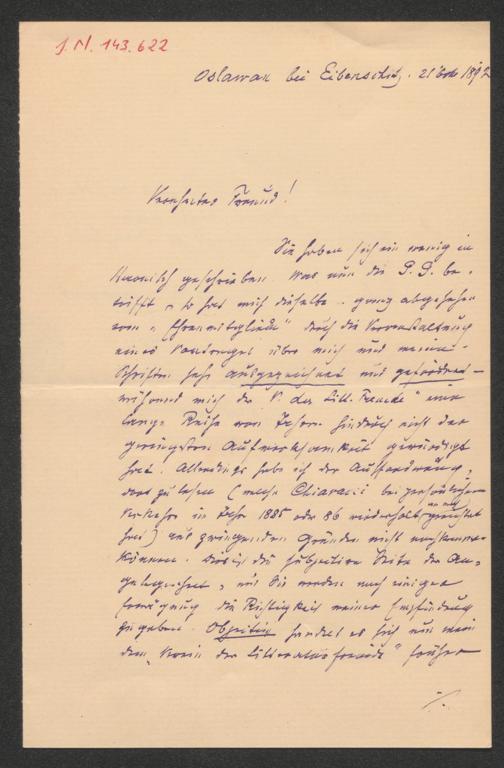 J.N. 143.622
Oslawan bei Eibenschitz. 21 Octo 1892
Verehrter Freund!
Sie haben sich ein wenig in
geschrieben. Was nun die G. G. be-
trifft, so hat mich dieselbe - ganz abgesehen
vom "Ehrenmitgliede" durch die Veranstaltung
eines Vortrages über mich und meine
Schriften sehr ausgezeichnet und gefördert -
während mich der V. der Litt. Freunde eine
lange Reihe von Jahren hindurch nicht der
geringsten Aufmerksamkeit gewürdigt
hat. Allerdings habe ich der Aufforderung,
dort zu lesen (welche Chiavacci bei persönlichem
Verkehr im Jahre 1885 oder 86 wiederholt an mich gerichtet
hat) aus zwingenden Gründen nicht nachkommen
können. Dies ist die subjective Seite der An-
gelegenheit, und Sie werden nach einiger
Erwägung die Richtigkeit meiner Empfindung
zugeben. Objectiv handelt es sich nun
dem "Verein der Litteraturfreunde" früher
./.